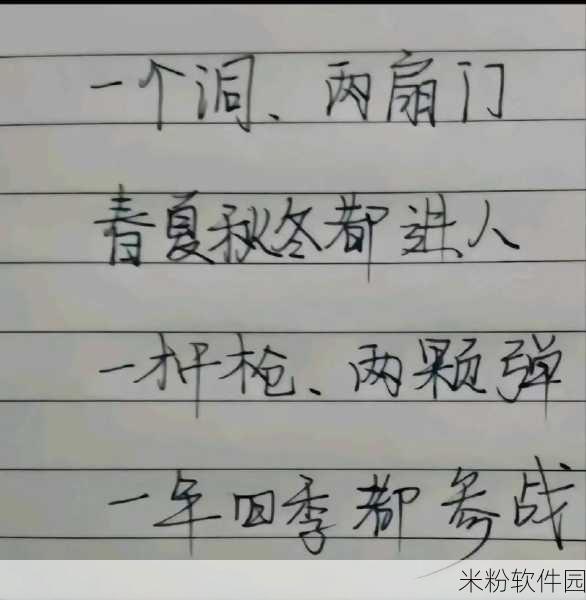 一个洞、两扇门
春夏秋冬都进人
一杆枪、两颗弹
一年四季都参战
米粉软件园